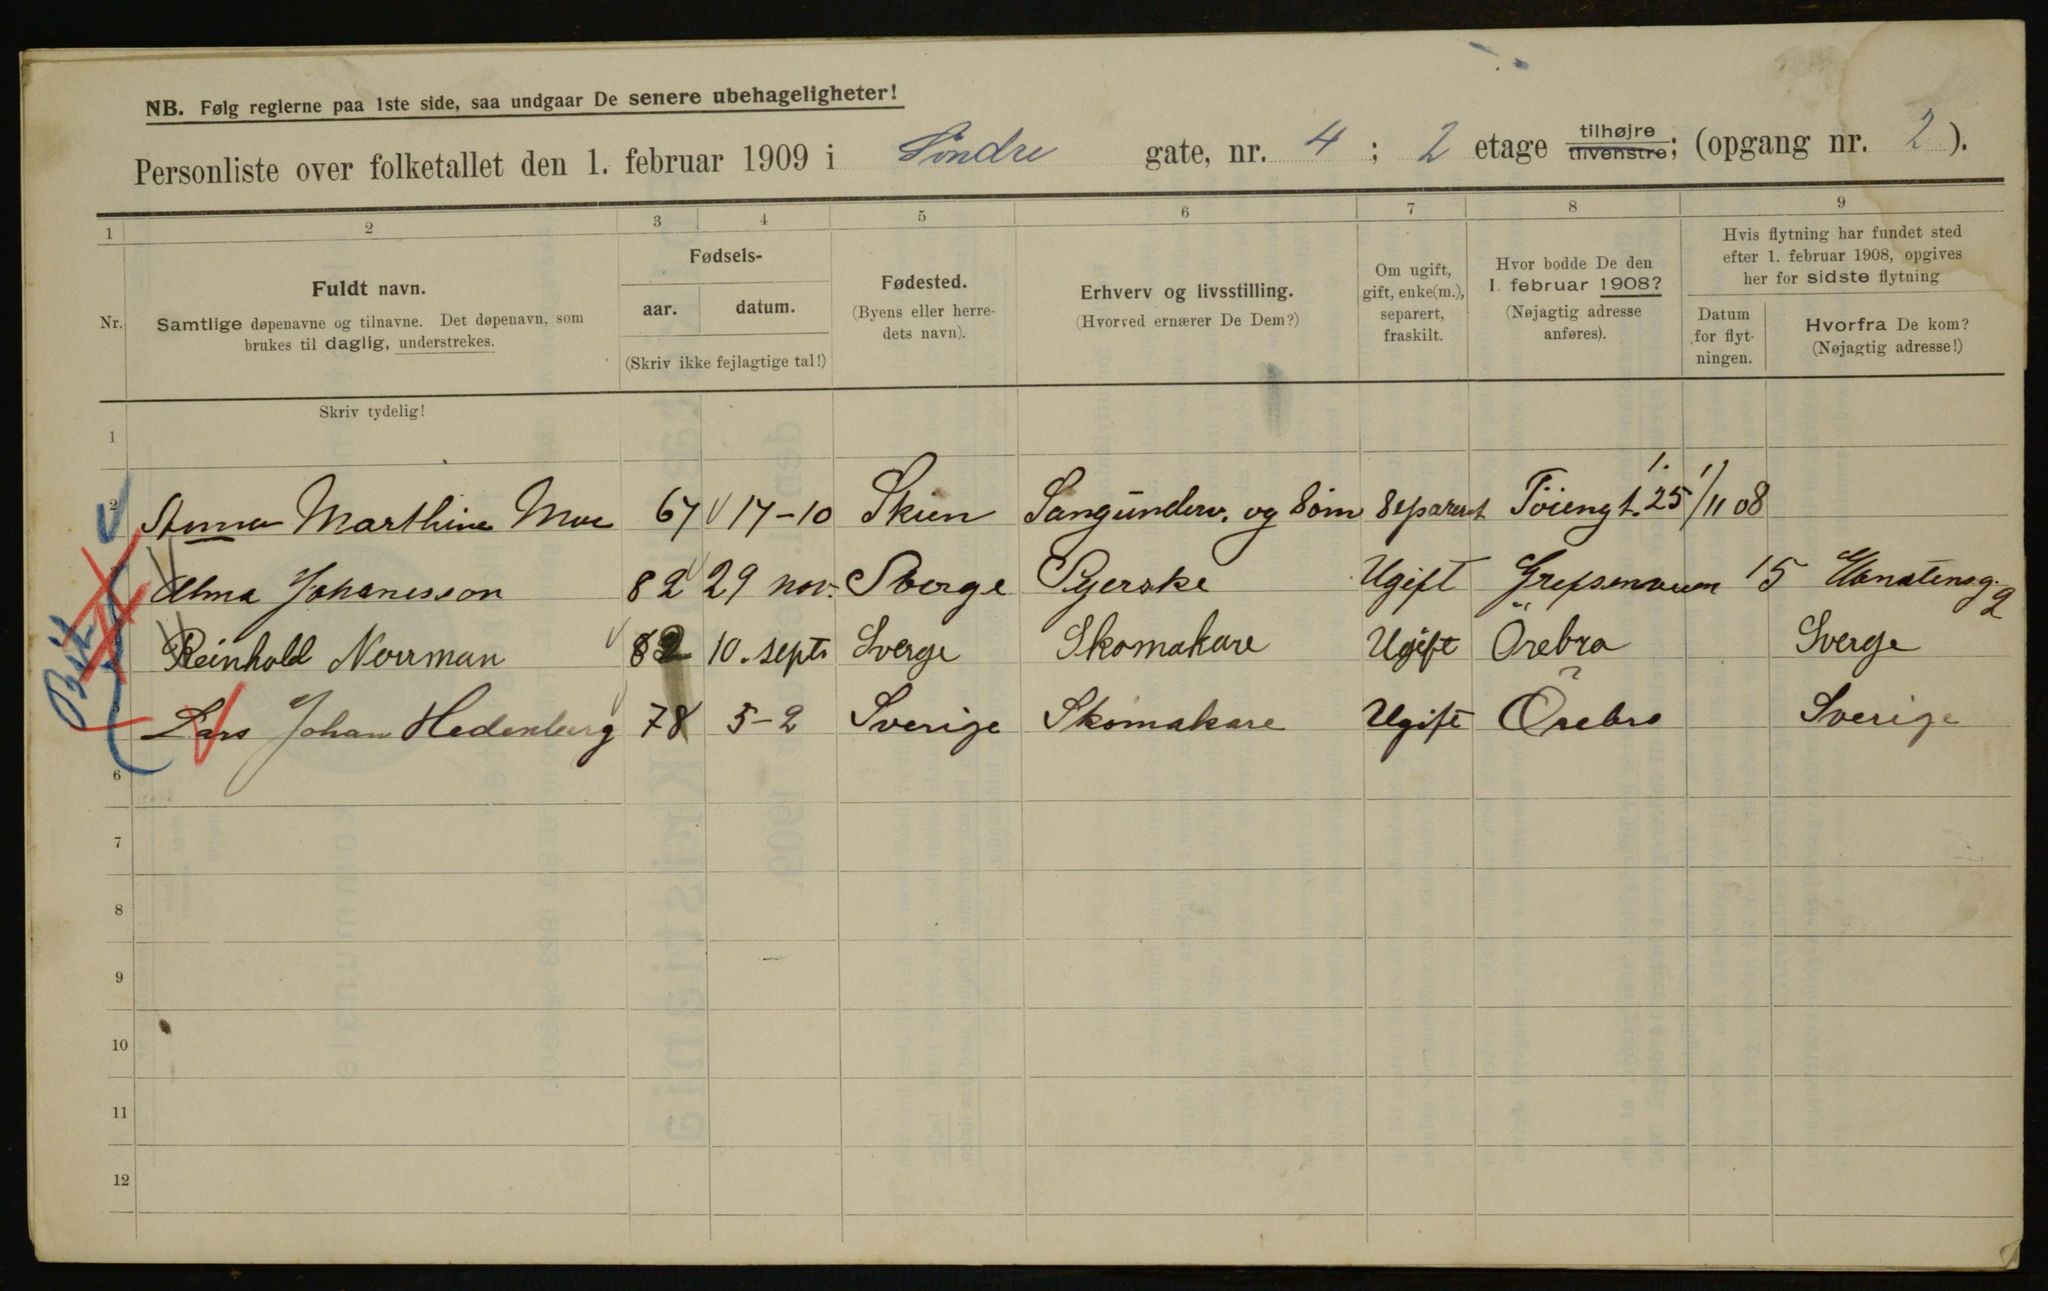 NB. Følg reglerne paa 1ste side, saa undgaar De senere ubehageligheter!
Personliste over folketallet den 1. februar 1909 i Söndre gate, nr. 4; 2 etage tilhøjre tilvenstre; (opgang nr. 2).
1 2 3 4 5 6 7 8 9
Nr.
Fuldt navn.
Samtlige døpenavne og tilnavne. Det døpenavn, som
brukes til daglig, understrekes.
Fødsels-
aar. datum.
(Skriv ikke fejlagtige tal!)
Fødested.
(Byens eller herre-
dets navn).
Erhverv og livsstilling.
(Hvorved ernærer De Dem?)
Om ugift,
gift, enke(m.),
separert,
fraskilt.
Hvor bodde De den
1. februar 1908?
(Nøjagtig adresse
anføres).
Hvis flytning har fundet sted
efter 1. februar 1908, opgives
her for sidste flytning
Datum
for flyt-
ningen.
Hvorfra De kom?
(Nøjagtig adresse!)
Skriv tydelig!
1
2 Anna Marthine Moe 67 17-10 Skien Sangunderv. og Söm Separert Töiengt. 25 1/11 08
Alma Johanesson 82 29 nov. Sverge Syerske Ugift Grefsenveien 15
Reinhold Norrman 82 10. sept. Sverge Skomakare Ugift Örebro Sverge
Lars Johan Hedenberg 78 5-2 Sverige Skomakare Ugift Örebro Sverige
6
7
8
9
10
11
12